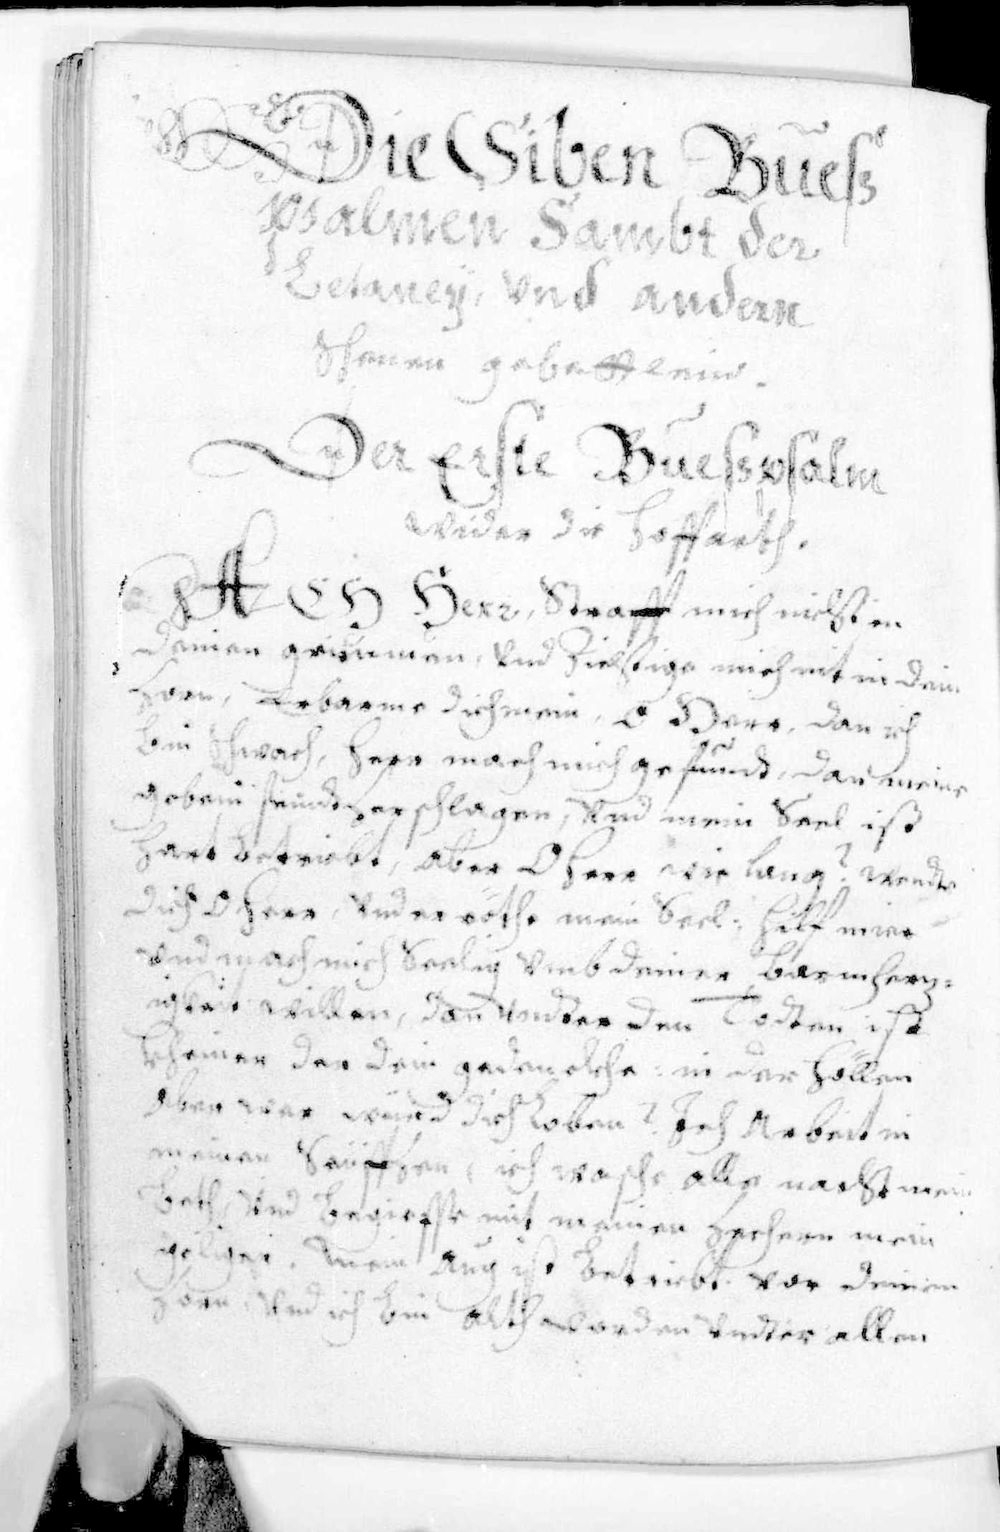 Die Siben Buess
psalmen Sambt der
Letaney, vnd andern
schenen gebettlein.
Der Erste Buesspsalm
wider die hoffarth.
ACH Herr, Straff mich nicht in
deinen grimmen, vnd Zichtige mich nit in dein
Zorn, Erbarme dich mein, O Herr, dan ich
bin schwach, herr mach mich gesundt, dan meine
gebein seindt zerschlagen, vnd mein Seel ist
hart betriebt, aber O herr wie lang? wendte
dich O herr, vnd erröthe mein Seel: hilf mier
vnd mach mich Seelig vmb deiner barmherz=
igkeit willen, dan vndter den Todten ist
kheiner der dein gedenckhe: in der höllen
aber wer würd dich loben? Ich Arbeit in
meinen Seüffzen, ich wasche alle nacht mein
beth, vnd begiesse mit meinen Zechern mein
geliger. Mein Aug ist betriebt vor deinem
Zorn, vnd ich bin alth worden vndter allen